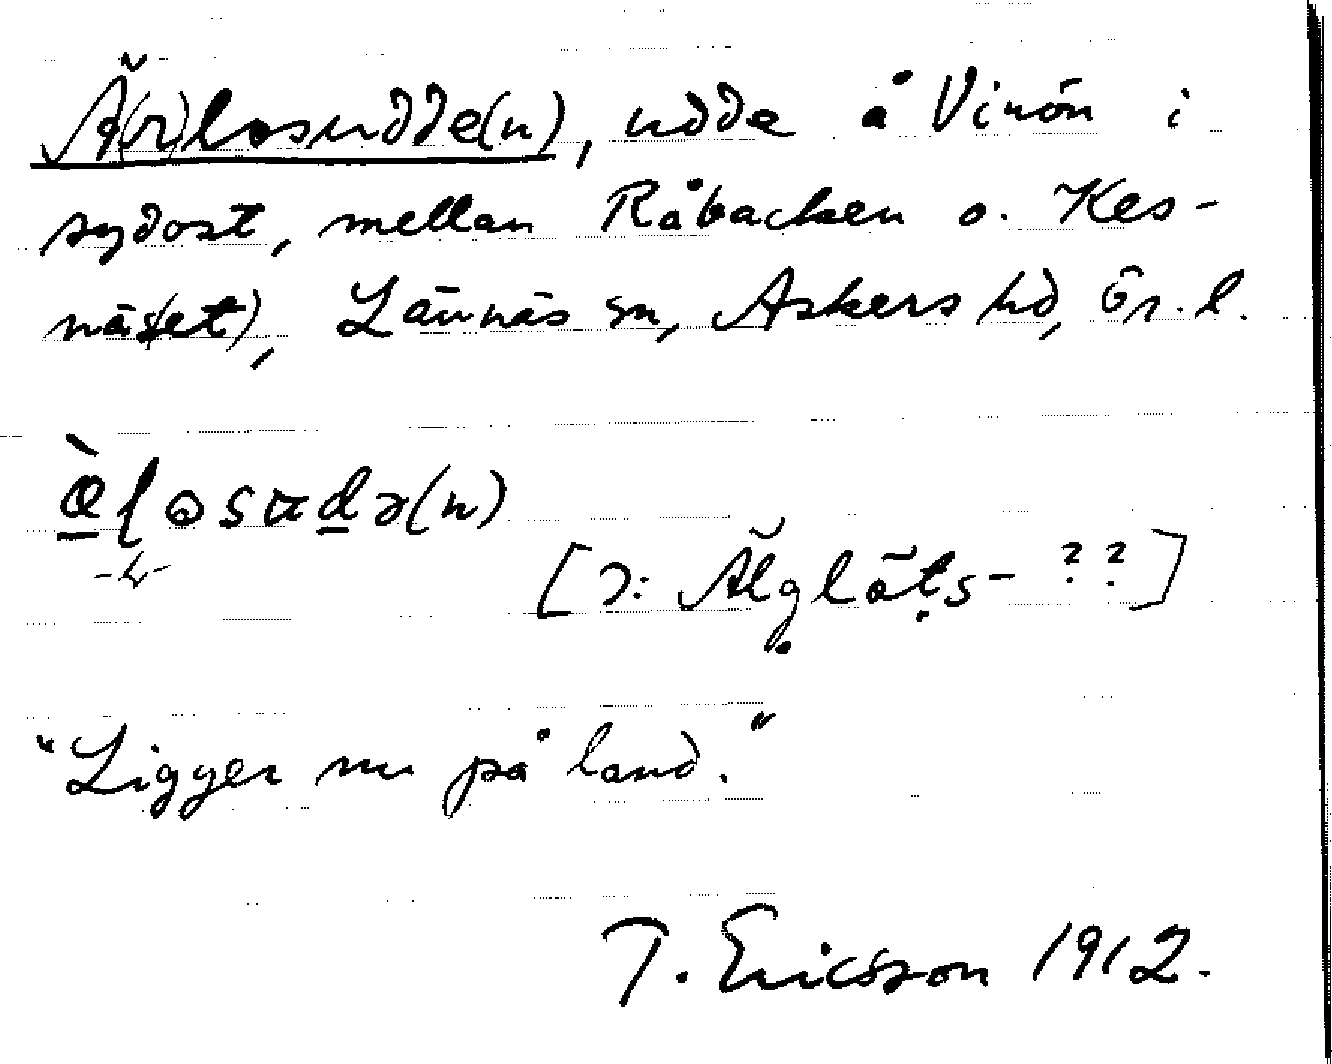 Ä(r)losudde(n), udde å Vinön i
sydost, mellan Råbacken o. Kes-
näs(et), Lännäs sn, Askers hd, Ör. l.
[ɔ: Älglöts- ??]
"Ligger nu på land."
T. Ericsson 1912.